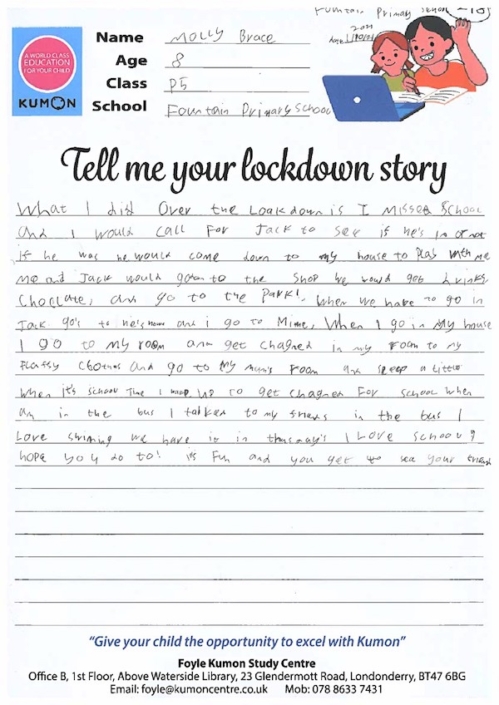 Fountain Primary School
2021
A WORLD CLASS
EDUCATION
FOR YOUR CHILD
KUMON
Name Molly Brace
Age 8
Class P5
School Fountain Primary School
Tell me your lockdown story
What I did Over the Loakdown is I Missed School
and I would call For Jack to see if he's in or not
if he was he would come down to my house to Play with me
me and Jack would go to the Shop we would get drinks,
Choclate, and go to the Park!. When we have to go in
Jack go's to he's home and i go to Mime, When I go in My house
I go to my room and get chagned in my room to my
Fluffy Clothes and go to my mum's room and sleep a little
When it's school Time I up to get chagned For school when
am in the bus I talked to my friends in the bus I
Love we have it in I Love School!
hope you do to! it's Fun and you get to see your friends
"Give your child the opportunity to excel with Kumon"
Foyle Kumon Study Centre
Office B, 1st Floor, Above Waterside Library, 23 Glendermott Road, Londonderry, BT47 6BG
Email: foyle@kumoncentre.co.uk Mob: 078 8633 7431